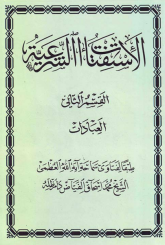 الاستفتاءات الشرعية
القسم الثاني
العبادات
طبقا لفتاوى سماحة آية الله العظمى
الشيخ محمد إسحاق الفياض دام ظله